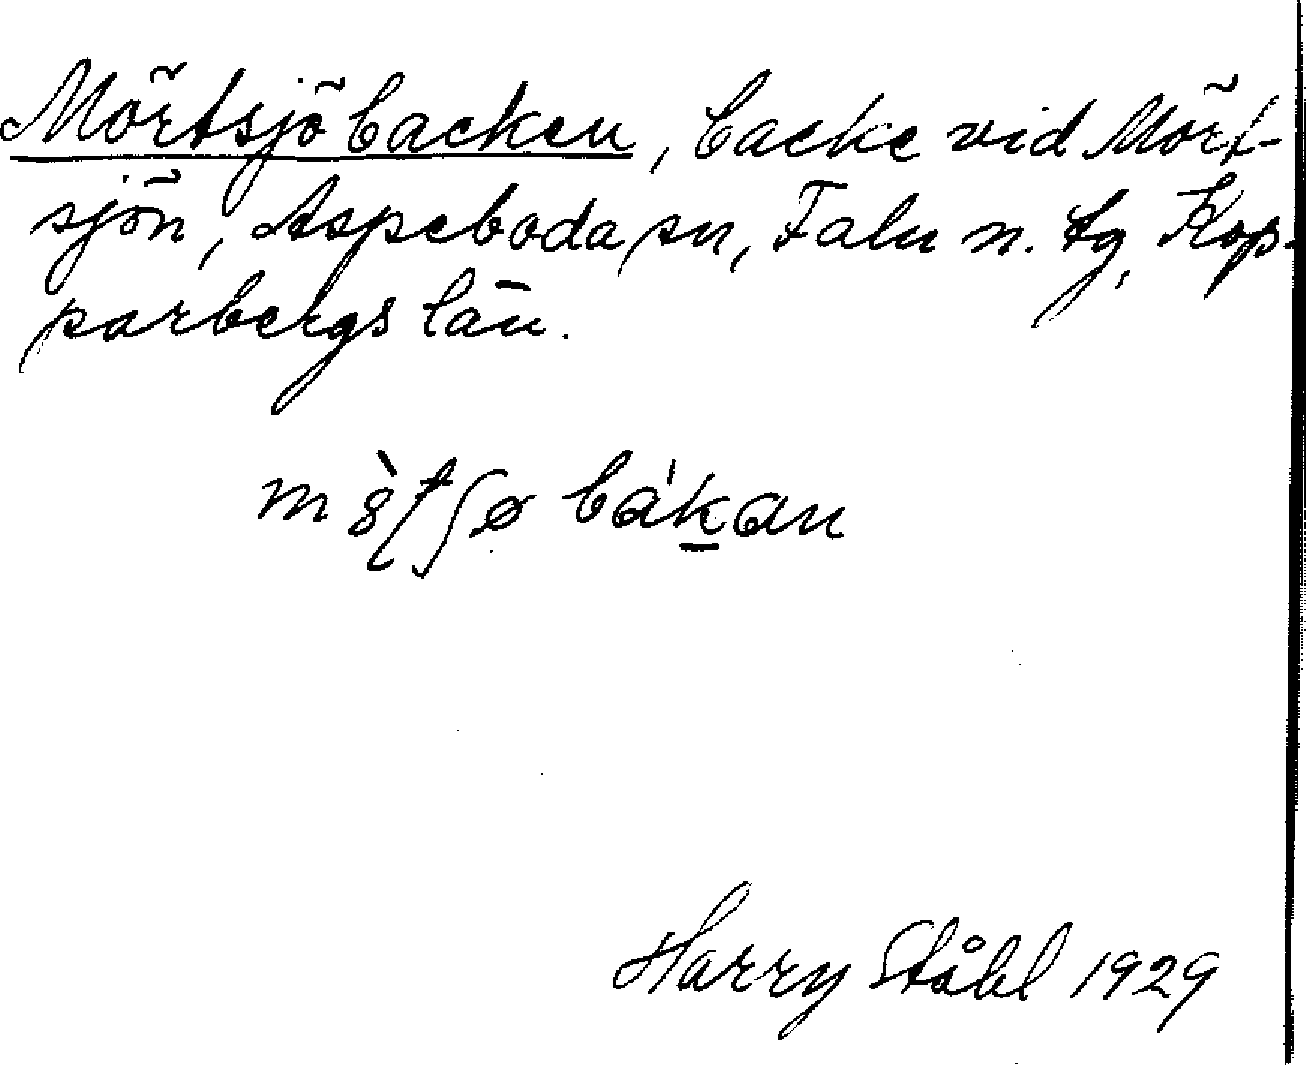 Mörtsjöbacken, backe vid Mört-
sjön, Aspeboda sn, Falu n. tg, Kop-
parbergs län.
bák̠an
Harry Ståhl 1929